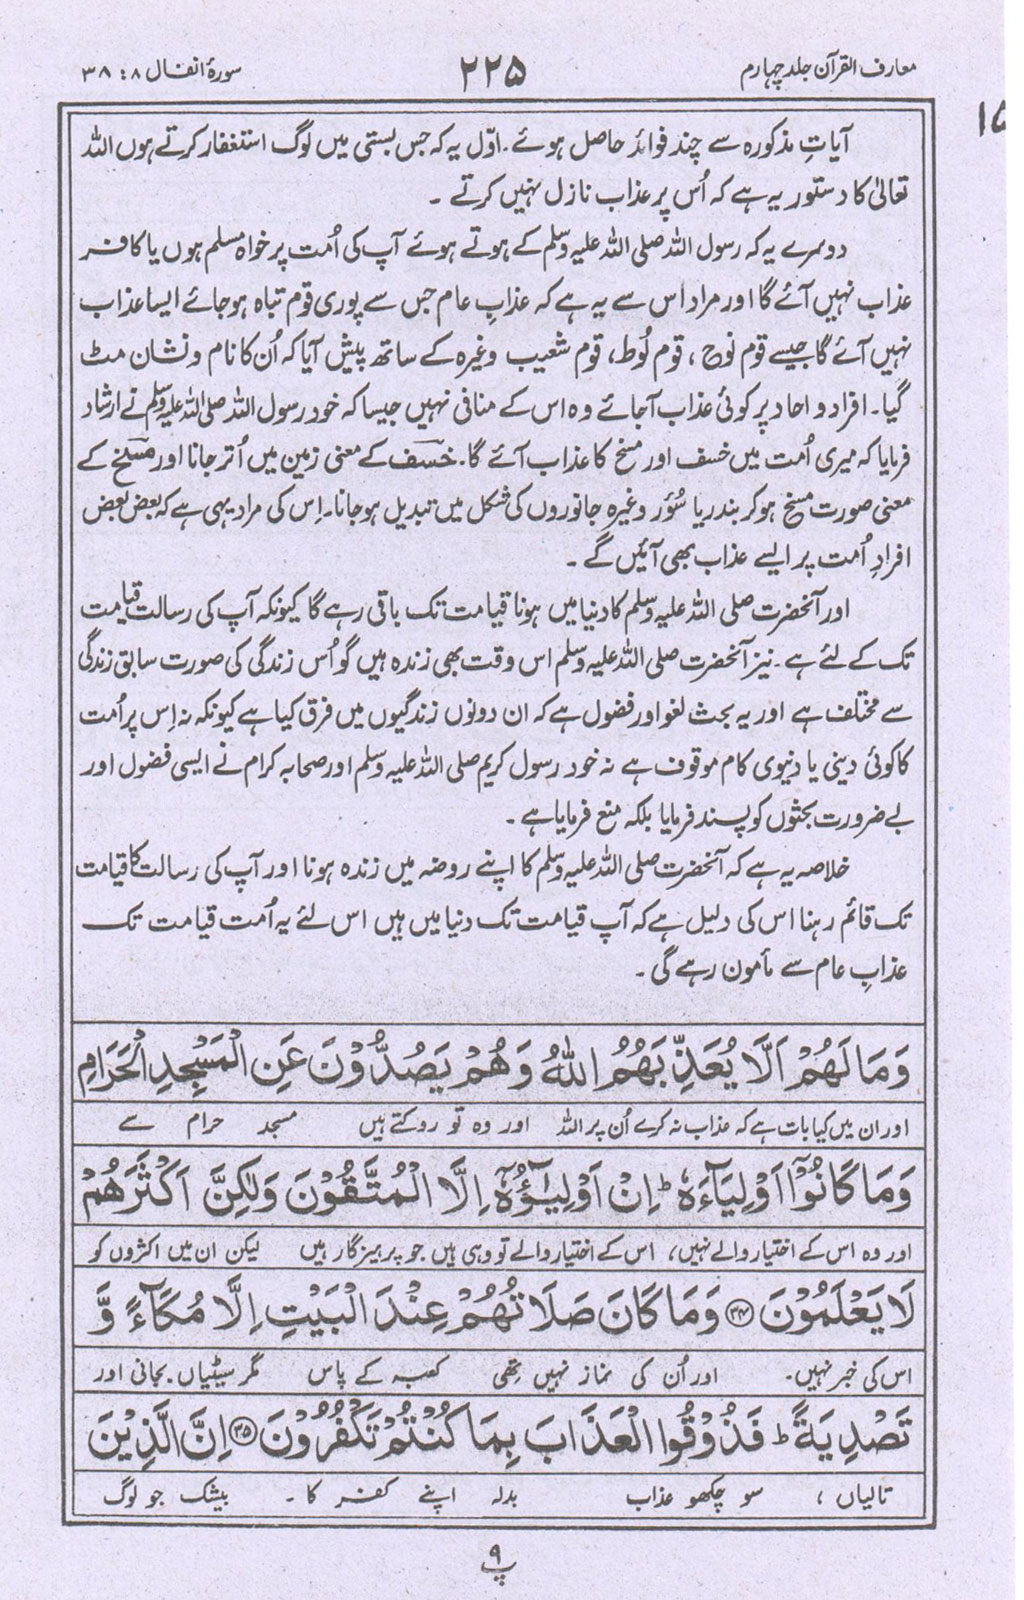 معارف القرآن جلد چہارم
۲۲۵
سورۂ انفال ۸ : ۳۸
۱۵
آیاتِ مذکورہ سے چند فوائد حاصل ہوئے۔ اوّل یہ کہ جس بستی میں لوگ استغفار کرتے ہوں اللہ
تعالیٰ کا دستور یہ ہے کہ اُس پر عذاب نازل نہیں کرتے ۔
دوسرے یہ کہ رسول اللہ صلی اللہ علیہ وسلم کے ہوتے ہوئے آپ کی اُمت پر خواہ مسلم ہوں یا کافر
عذاب نہیں آئے گا اور مراد اس سے یہ ہے کہ عذابِ عام جس سے پوری قوم تباہ ہو جائے ایسا عذاب
نہیں آئے گا جیسے قوم نوح ، قوم لُوط، قوم شعیب وغیرہ کے ساتھ پیش آیا کہ اُن کا نام و نشان مٹ
گیا۔ افراد و احاد پر کوئی عذاب آجائے وہ اس کے منافی نہیں جیسا کہ خود رسول اللہ صلی اللہ علیہ وسلم نے ارشاد
فرمایا کہ میری اُمت میں خسف اور مسخ کا عذاب آئے گا۔ خسف کے معنی زمین میں اُتر جانا اور مسخ کے
معنی صورت مسخ ہو کر بندر یا سُؤر وغیرہ جانوروں کی شکل میں تبدیل ہو جانا۔ اِس کی مراد یہی ہے کہ بعض بعض
افرادِ اُمت پر ایسے عذاب بھی آئیں گے ۔
اور آنحضرت صلی اللہ علیہ وسلم کا دنیا میں ہونا قیامت تک باقی رہے گا کیونکہ آپ کی رسالت قیامت
تک کے لئے ہے۔ نیز آنحضرت صلی اللہ علیہ وسلم اس وقت بھی زندہ ہیں گو اُس زندگی کی صورت سابق زندگی
سے مختلف ہے اور یہ بحث لغو اور فضول ہے کہ ان دونوں زندگیوں میں فرق کیا ہے کیونکہ نہ اِس پر اُمت
کا کوئی دینی یا دنیوی کام موقوف ہے نہ خود رسول کریم صلی اللہ علیہ وسلم اور صحابہ کرام نے ایسی فضول اور
بے ضرورت بحثوں کو پسند فرمایا بلکہ منع فرمایا ہے ۔
خلاصہ یہ ہے کہ آنحضرت صلی اللہ علیہ وسلم کا اپنے روضہ میں زندہ ہونا اور آپ کی رسالت کا قیامت
تک قائم رہنا اس کی دلیل ہے کہ آپ قیامت تک دنیا میں ہیں اس لئے یہ اُمت قیامت تک
عذابِ عام سے مأمون رہے گی ۔
وَمَا لَهُمْ اَلَّا يُعَذِّبَهُمُ اللّٰهُ وَهُمْ يَصُدُّوْنَ عَنِ الْمَسْجِدِ الْحَرَامِ
اور ان میں کیا بات ہے کہ عذاب نہ کرے اُن پر اللہ اور وہ تو روکتے ہیں مسجد حرام سے
وَمَا كَانُوْٓا اَوْلِيَآءَهٗ ؕ اِنْ اَوْلِيَآؤُهٗٓ اِلَّا الْمُتَّقُوْنَ وَلٰكِنَّ اَكْثَرَهُمْ
اور وہ اس کے اختیار والے نہیں، اس کے اختیار والے تو وہی ہیں جو پرہیزگار ہیں لیکن ان میں اکثروں کو
لَا يَعْلَمُوْنَ ﴿۳۴﴾ وَمَا كَانَ صَلَاتُهُمْ عِنْدَ الْبَيْتِ اِلَّا مُكَآءً وَّ
اس کی خبر نہیں۔ اور اُن کی نماز نہیں تھی کعبہ کے پاس مگر سیٹیاں بجانی اور
تَصْدِيَةً ؕ فَذُوْقُوا الْعَذَابَ بِمَا كُنْتُمْ تَكْفُرُوْنَ ﴿۳۵﴾ اِنَّ الَّذِيْنَ
تالیاں ، سو چکھو عذاب بدلہ اپنے کفر کا ۔ بیشک جو لوگ
۹
پ